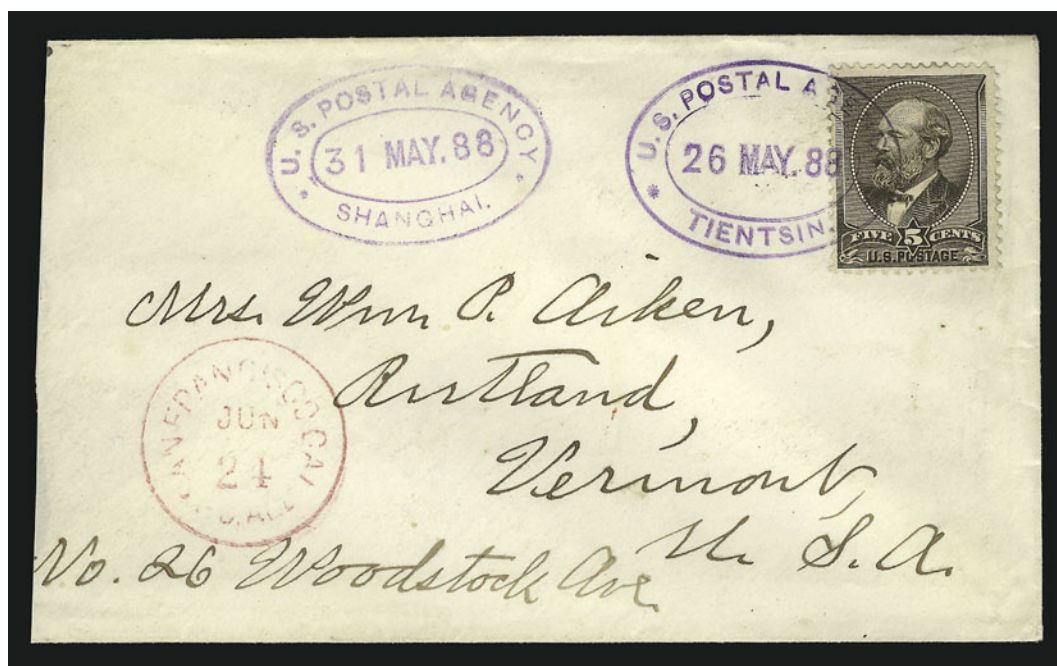 U. S. POSTAL AGENCY
31 MAY. 88
SHANGHAI.
U. S. POSTAL
26 MAY. 88
TIENTSIN.
FIVE 5 CENTS
U.S. POSTAGE
Mrs. Wm P. Aiken,
Rutland,
Vermont,
U. S. A.
SAN FRANCISCO CAL
JUN
24
No. 26 Woodstock Ave.